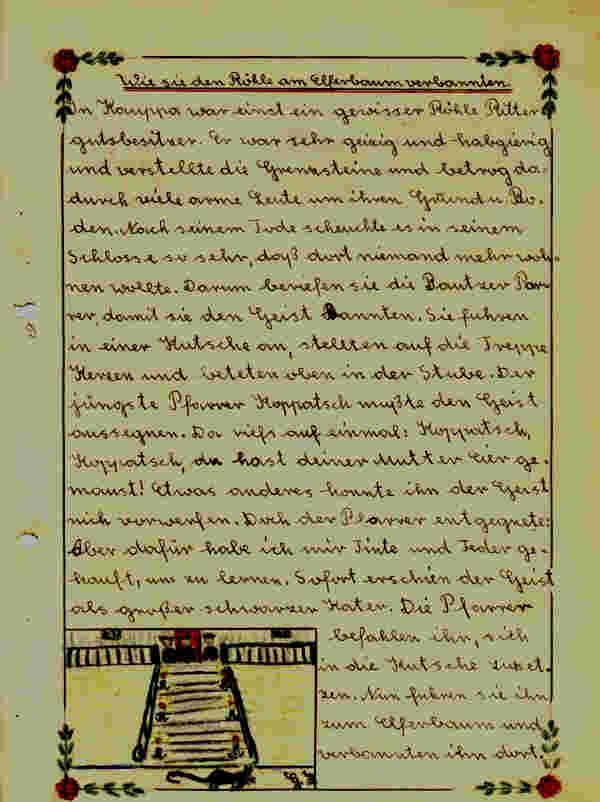 Wie sie den Röhle am Elferbaum verbannten.
In Kauppa war einst ein gewisser Röhle Ritter
gutsbesitzer. Er war sehr geizig und habgierig
und verstellte die Grenzsteine und betrog da-
durch viele arme Leute um ihren Grund u. Bo-
den. Nach seinem Tode scheuchte es in seinem
Schlosse so sehr, daß dort niemand mehr woh-
nen wollte. Darum beriefen sie die Bautzer Par-
rer, damit sie den Geist bannten. Sie fuhren
in einer Kutsche an, stellten auf die Treppe
Kerzen und beteten oben in der Stube. Der
jüngste Pfarrer Koppatsch mußte den Geist
aussegnen. Da riefs auf einmal: Koppatsch,
Koppatsch, du hast deiner Mutter Eier ge-
maust! Etwas anderes konnte ihn der Geist
nich vorwerfen. Doch der Pfarrer entgegnete:
Aber dafür habe ich mir Tinte und Feder ge-
kauft, um zu lernen. Sofort erschien der Geist
als großer schwarzer Kater. Die Pfarrer
befahlen ihr, sich
in die Kutsche zuset-
zen. Nun fuhren sie ihn
zum Elferbaum und
verbannten ihn dort.